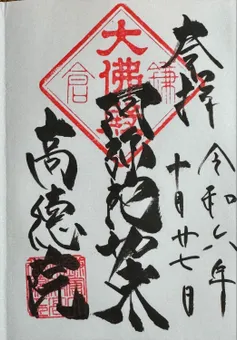 奉拝
令和六年
十月廿七日
大佛
鎌倉
阿弥陀如来
高徳院